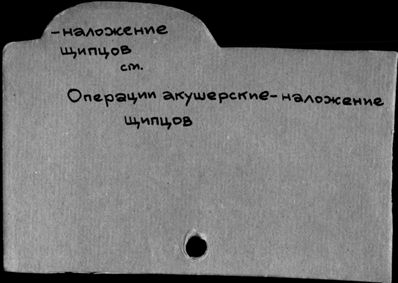 -наложение
щипцов
см.
Операции акушерские-наложение
щипцов